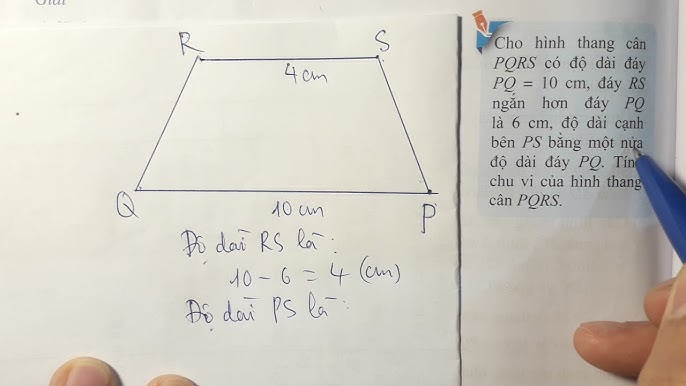 Giải
R
S
4 cm
Q
P
10 cm
Độ dài RS là:
10 - 6 = 4 (cm)
Độ dài PS là:
Cho hình thang cân
PQRS có độ dài đáy
PQ = 10 cm, đáy RS
ngắn hơn đáy PQ
là 6 cm, độ dài cạnh
bên PS bằng một nửa
độ dài đáy PQ. Tín
chu vi của hình thang
cân PQRS.